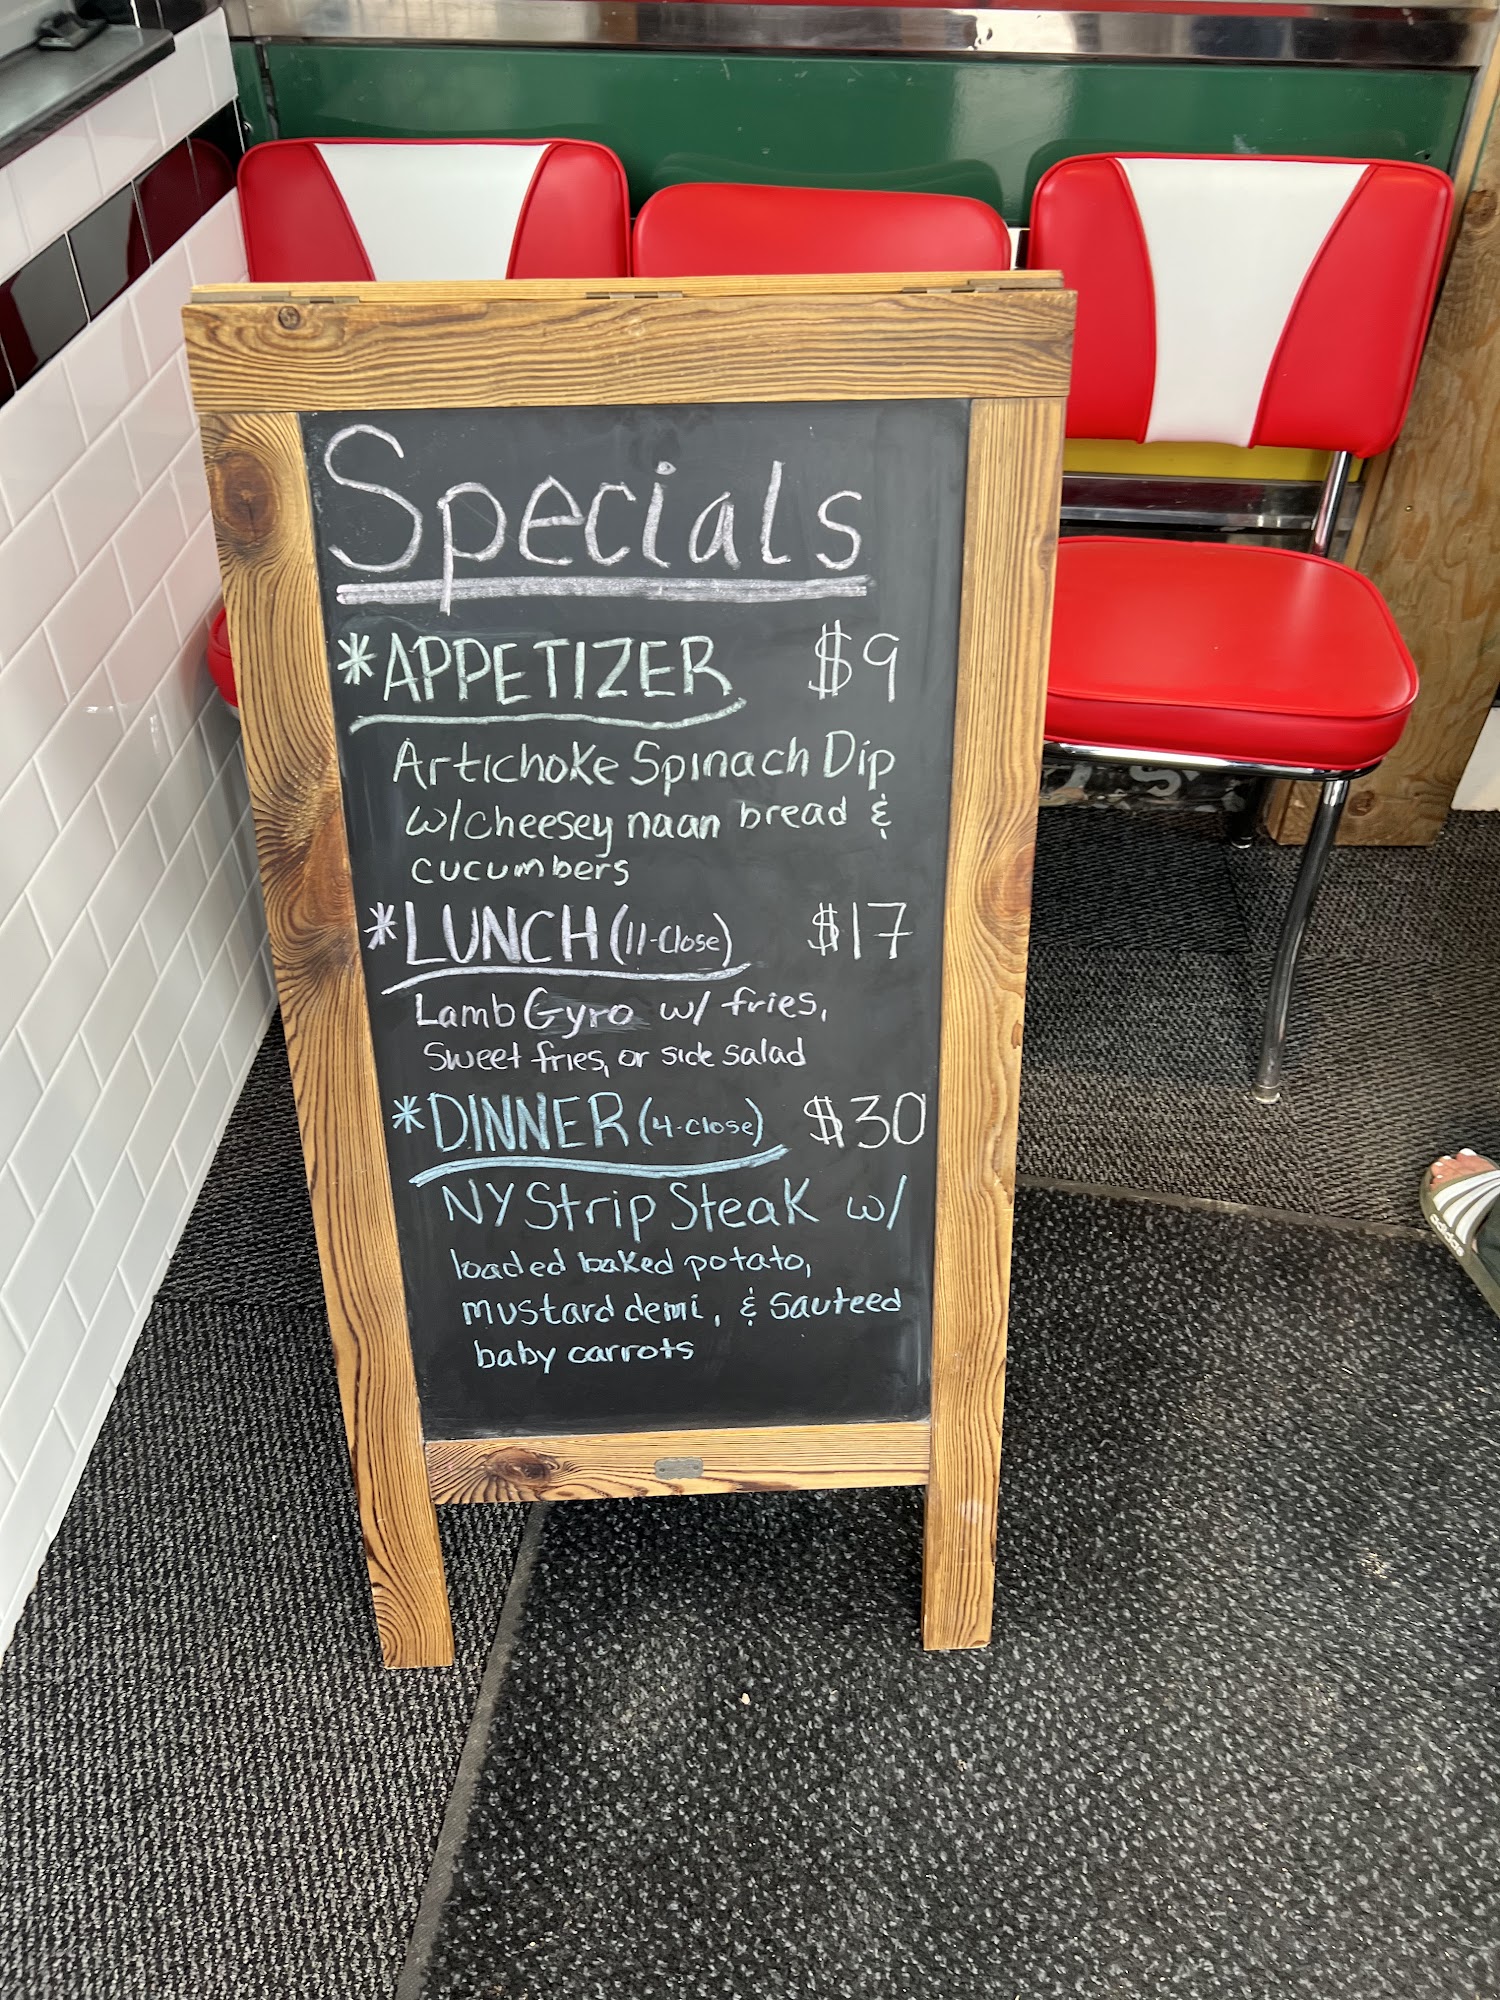 Specials
*APPETIZER $9
Artichoke Spinach Dip
w/cheesey naan bread &
cucumbers
*LUNCH (11-Close) $17
Lamb Gyro w/ fries,
Sweet fries, or side salad
*DINNER (4-close) $30
NY Strip Steak w/
loaded baked potato,
mustard demi, & Sauteed
baby carrots
adidas